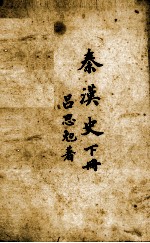 秦漢史下冊
呂思勉著